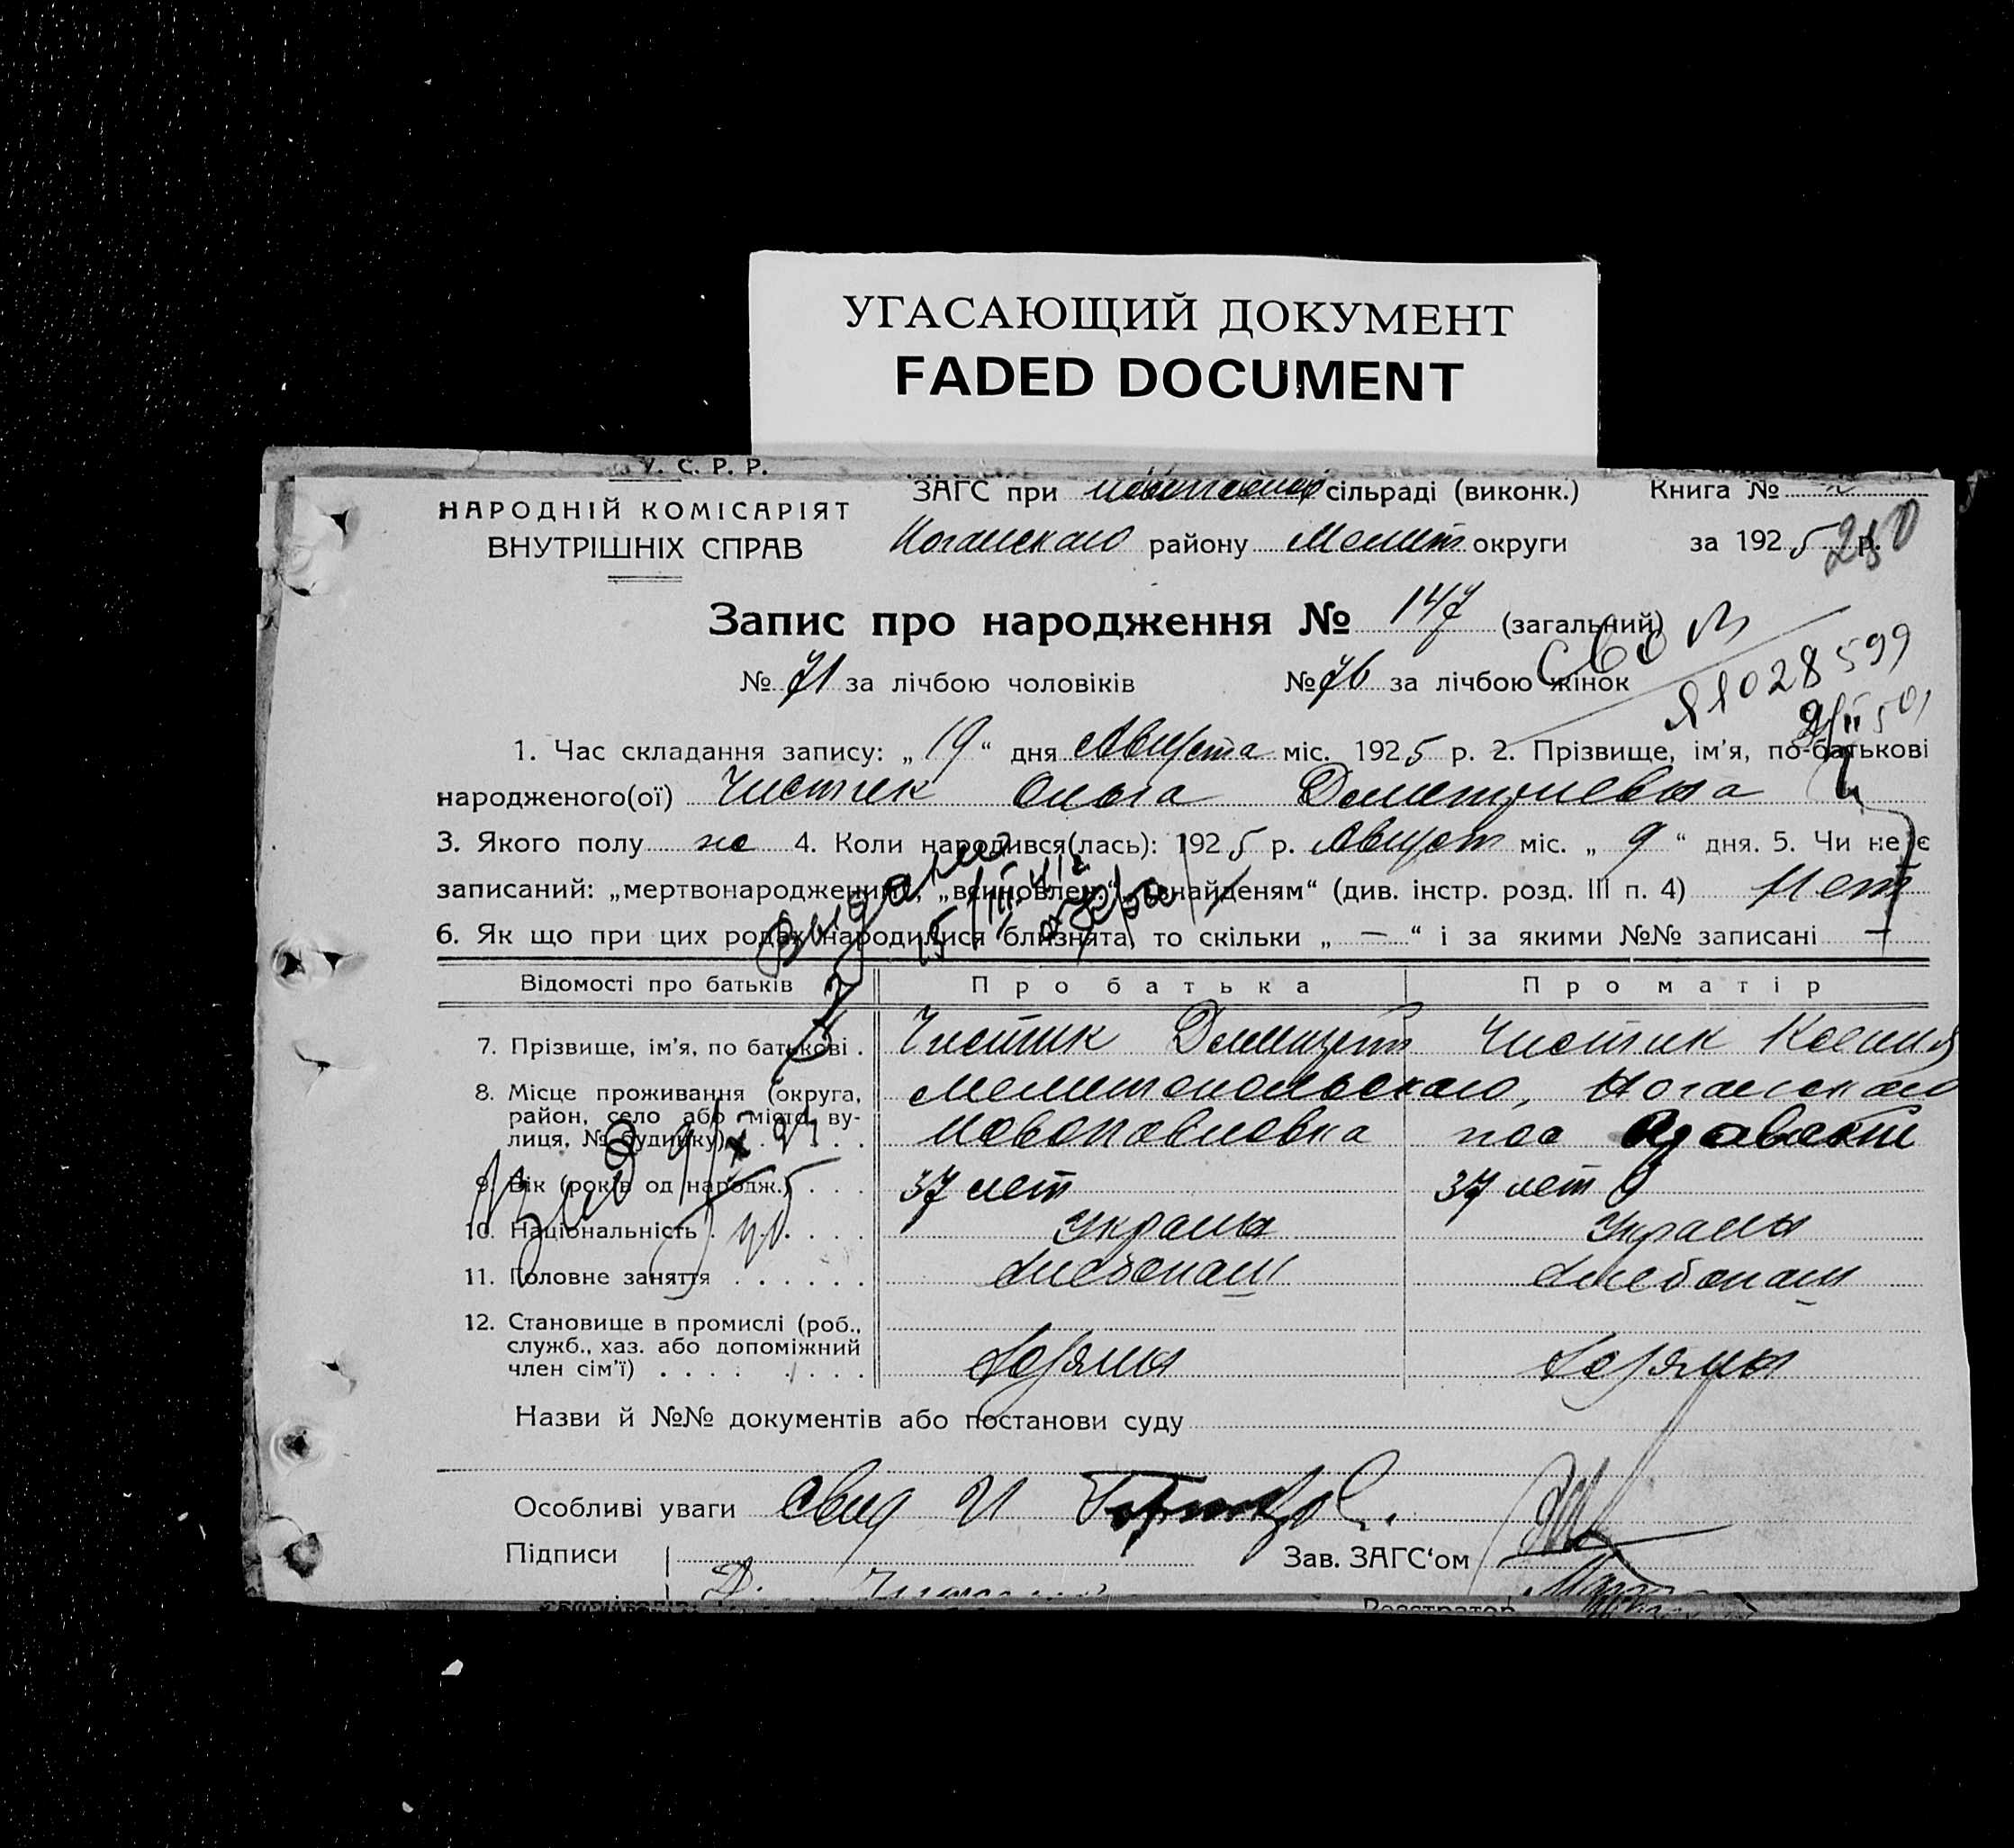 УГАСАЮЩИЙ ДОКУМЕНТ
FADED DOCUMENT
У. С. Р. Р.
НАРОДНІЙ КОМІСАРІЯТ
ВНУТРІШНІХ СПРАВ
ЗАГС при сільраді (виконк.)
Ногайскаго району Мелит округи
Книга №
за 1925 р.
250
Запис про народження № 147 (загальний)
№ 71 за лічбою чоловіків № 76 за лічбою жінок
1028599
1. Час складання запису: „ 19 “ дня Августа міс. 1925 р. 2. Прізвище, ім'я, по-батькові
народженого(ої) Чистик Ольга Дмитриевна
3. Якого полу же 4. Коли народився(лась): 1925 р. Август міс. „ 9 “ дня. 5. Чи не є
записаний: „мертвонародженим“, „всиновлен.“, „знайденям“ (див. інстр. розд. III п. 4) Нет
6. Як що при цих родах народилися близнята, то скільки „ — “ і за якими №№ записані —
Відомості про батьків Про батька Про матір
7. Прізвище, ім'я, по батькові . Чистик Дмитрий Чистик Ксения
8. Місце проживання (округа, район, село або місто, вулиця, № будинку) . . . Мелитопольскаго, Ногайскаго
Новопавловка
9. Вік (років од народж.) . . . 37 лет 37 лет
10. Національність . . . . Украины Украины
11. Головне заняття . . . . . . Хлебопаш Хлебопаш
12. Становище в промислі (роб.,
служб., хаз. або допоміжний
член сім'ї) . . . . . . . Хозяин Хозяин
Назви й №№ документів або постанови суду
Особливі уваги свид
Підписи Зав. ЗАГС'ом
Реєстратор